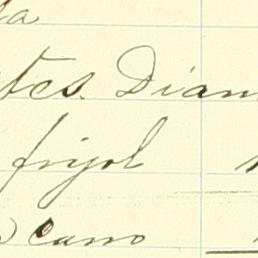 da
tes. Dian
frijol
carro